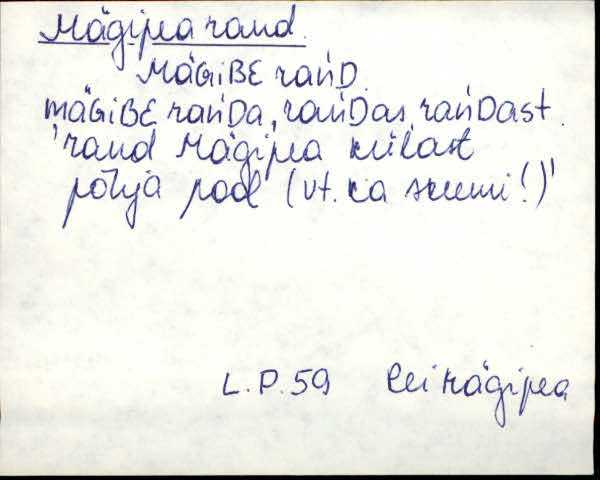 Mägipea rand.
MÄGiBE rańD.
MÄGiBE rańDa, rańDas, rańDast.
'rand Mägipea külast
põhja pool (vt. ka skeemi!)'
L.P. 59 Lei Mägipea